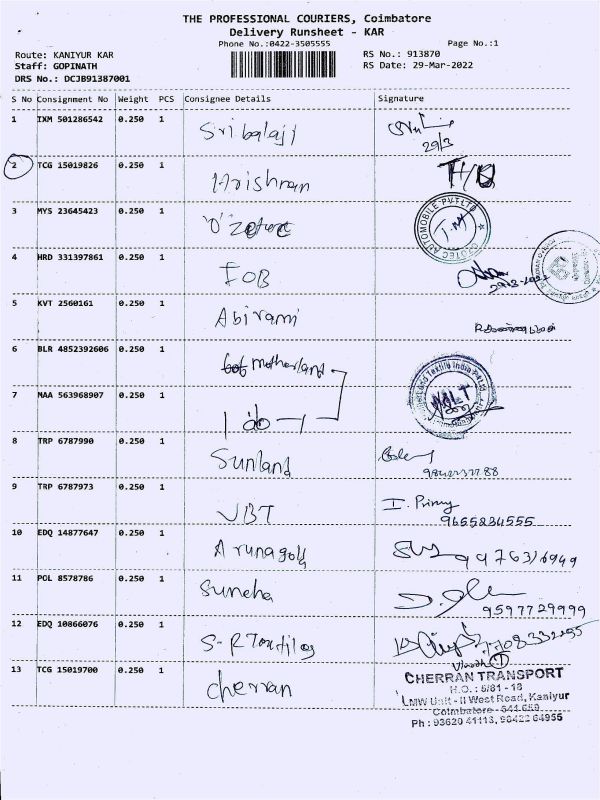 THE PROFESSIONAL COURIERS, Coimbatore
Delivery Runsheet - KAR
Phone No.:0422-3505555
Page No.:1
Route: KANIYUR KAR
RS No.: 913870
Staff: GOPINATH
RS Date: 29-Mar-2022
DRS No.: DCJB91387001
S No Consignment No Weight PCS Consignee Details Signature
1 IXM 501286542 0.250 1 Sri balaji
29/3
2 TCG 15019826 0.250 1 Hrishnan
3 MYS 23645423 0.250 1
AUTOMOBILE PVT LTD
4 HRD 331397861 0.250 1 IOB
5 KVT 2560161 0.250 1 Abirami
6 BLR 4852392606 0.250 1 motherland
7 MAA 563968907 0.250 1 do
Textile India Pvt Ltd
MLT
8 TRP 6787990 0.250 1 Sunland
9 TRP 6787973 0.250 1 VBT
9655234555
10 EDQ 14877647 0.250 1 Arunagold
11 POL 8578786 0.250 1 Suneha
9597729999
12 EDQ 10866076 0.250 1
13 TCG 15019700 0.250 1 Cherran
CHERRAN TRANSPORT
H.O.: 5/81 - 18
LMW Unit - II West Road, Kaniyur
Coimbatore - 641 659
Ph : 93620 41113, 98422 64955